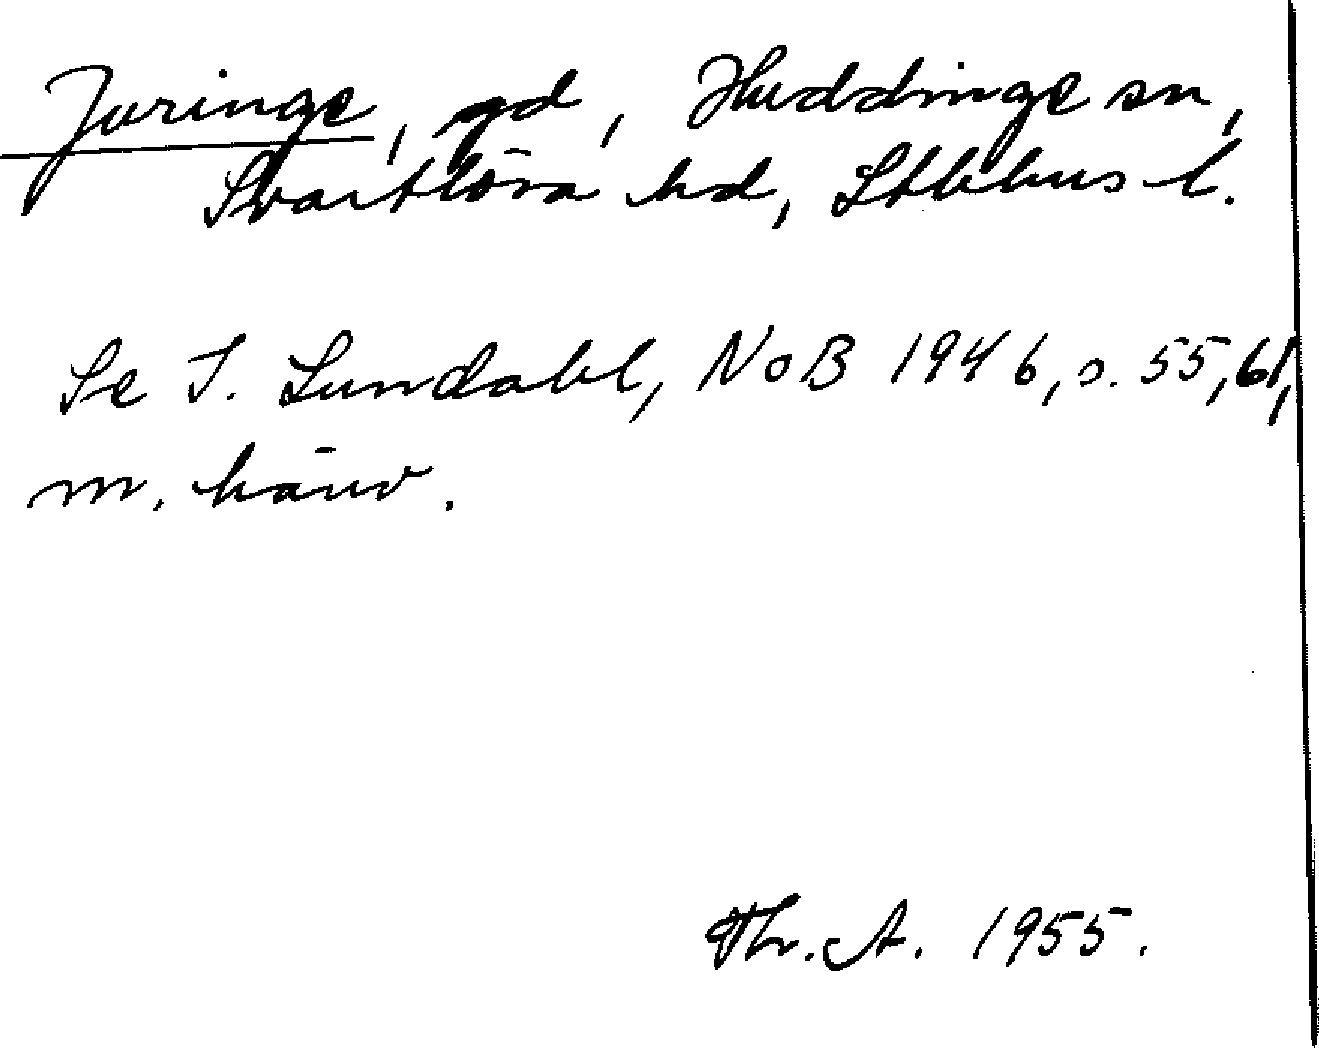 Juringe, gd, Huddinge sn,
Svartlösa hd, Sthlms l.
Se I. Lundahl, NoB 1946, s. 55, 61,
m. hänv.
Thr. A. 1955.